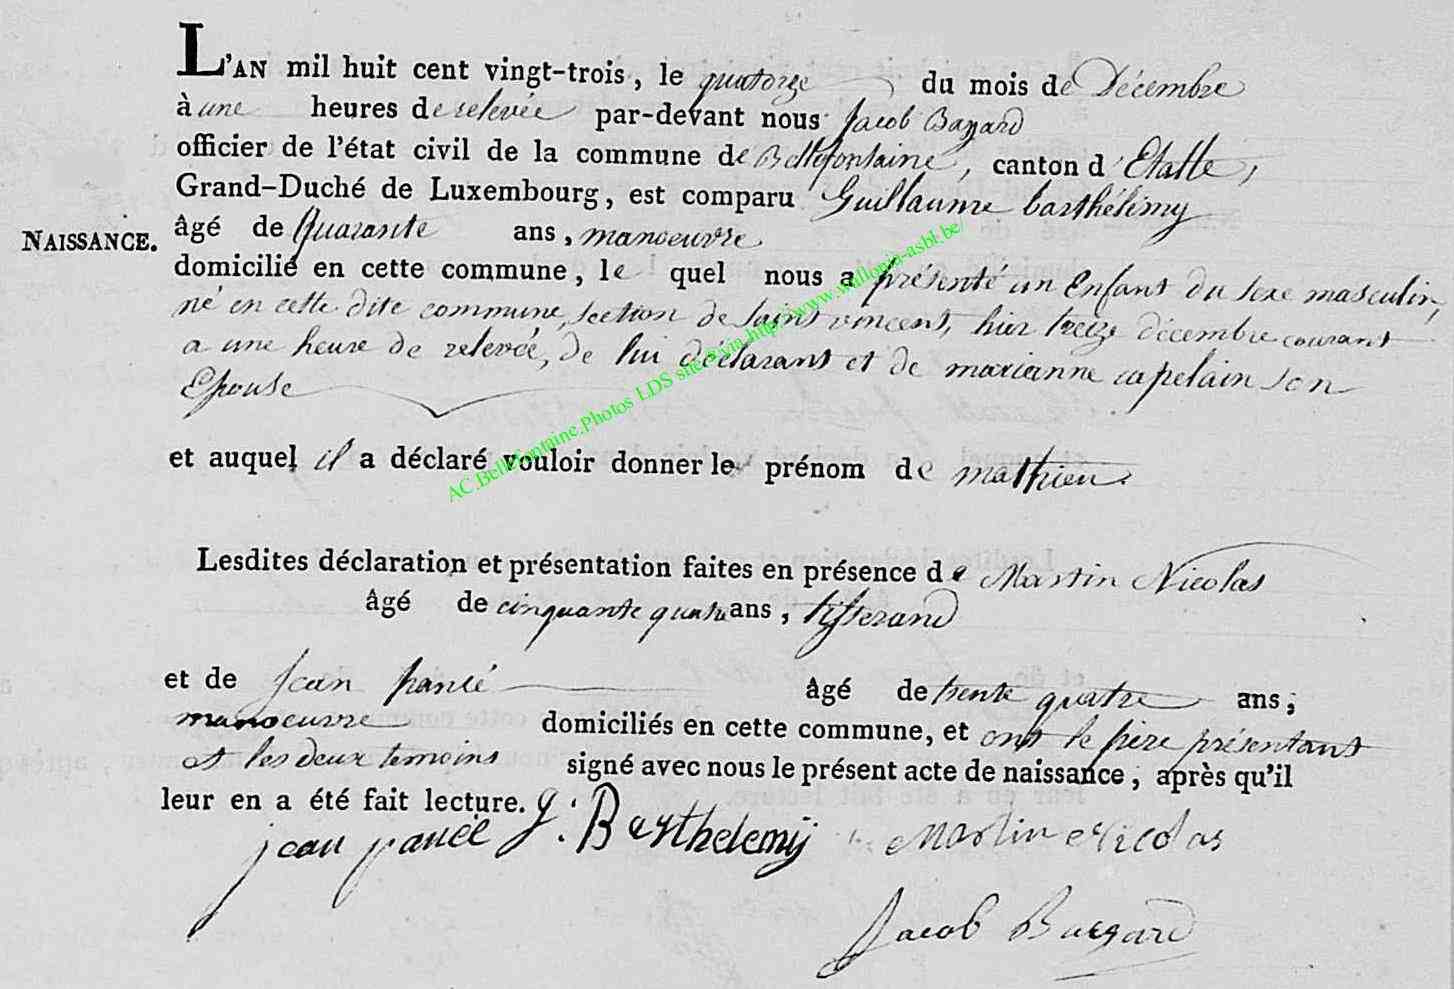 L'AN mil huit cent vingt-trois, le quatorze du mois de Décembre
à une heures de relevée par-devant nous Jacob Bazard
officier de l'état civil de la commune de Bellefontaine, canton d'Etalle,
Grand-Duché de Luxembourg, est comparu Guillaume barthélémy
NAISSANCE.
âgé de Quarante ans, manoeuvre
domicilié en cette commune, le quel nous a présenté un Enfant du sexe masculin,
né en cette dite commune, section de saint vincent, hier treize décembre courant
a une heure de relevée, de lui déclarant et de marianne capelain son
Epouse
et auquel il a déclaré vouloir donner le prénom de mathieu.
Lesdites déclaration et présentation faites en présence de Martin Nicolas
âgé de cinquante quatre ans, tisserand
et de Jean pancé âgé de trente quatre ans;
manoeuvre domiciliés en cette commune, et ont le père présentant
et les deux temoins signé avec nous le présent acte de naissance, après qu'il
leur en a été fait lecture.
jean pancé G. Barthelemij Martin Nicolas
Jacob
AC.Bellefontaine.Photos LDS site via http://www.wallonia-asbl.be/